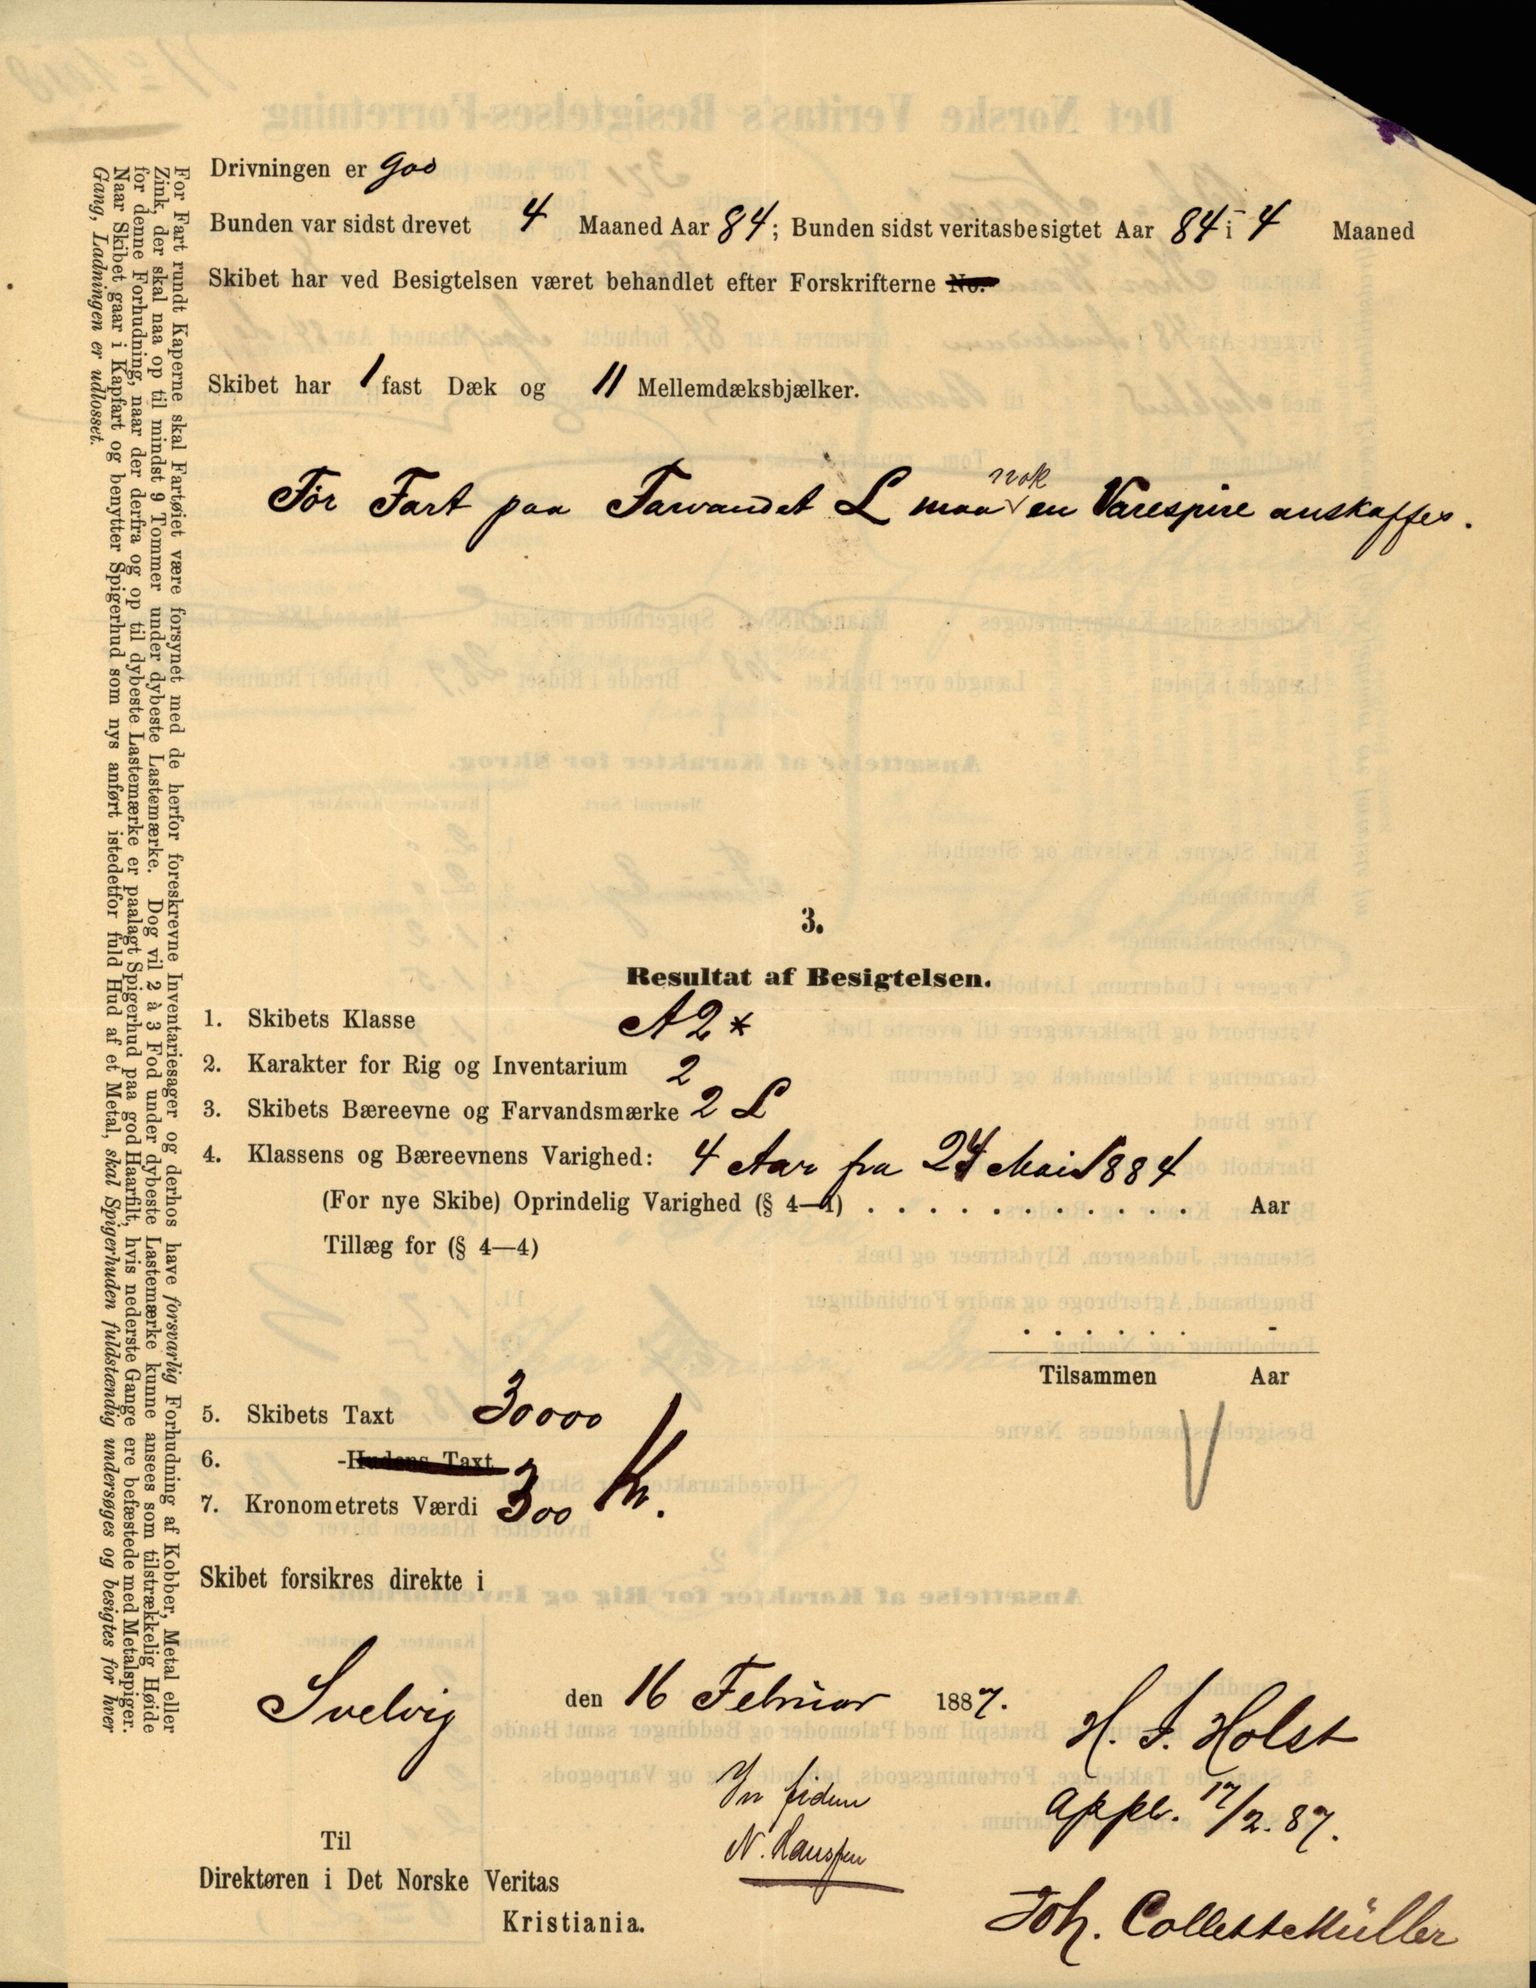 Drivningen er god
Bunden var sidst drevet 4 Maaned Aar 84; Bunden sidst veritasbesigtet Aar 84 i 4 Maaned
Skibet har ved Besigtelsen været behandlet efter Forskrifterne No.
Skibet har 1 fast Dæk og 11 Mellemdæksbjælker.
nok
För Fart paa Farvandet L maa en Varespire anskaffes.
3.
Resultat af Besigtelsen.
1. Skibets Klasse A2*
2. Karakter for Rig og Inventarium 2
3. Skibets Bæreevne og Farvandsmærke 2 L
4. Klassens og Bæreevnens Varighed: 4 Aar fra 24 Mai 1884
(For nye Skibe) Oprindelig Varighed (§ 4—4) . . . . . . . . . . . . Aar
Tillæg for (§ 4—4)
. . . . . . -
Tilsammen Aar
5. Skibets Taxt 30000
6. -Hudens Taxt
7. Kronometrets Værdi 300 Kr.
V
Skibet forsikres direkte i
Svelvig den 16 Februar 1887.
H. J. Holst
In fidem
N. Hanssen
appr. 17/2. 87.
Joh. Collett Müller
Til
Direktøren i Det Norske Veritas
Kristiania.
For Fart rundt Kaperne skal Fartøiet være forsynet med de herfor foreskrevne Inventariesager og derhos have forsvarlig Forhudning af Kobber, Metal eller
Zink, der skal naa op til mindst 9 Tommer under dybeste Lastemærke. Dog vil 2 à 3 Fod under dybeste Lastemærke kunne ansees som tilstrækkelig Høide
for denne Forhudning, naar der derfra og op til dybeste Lastemærke er paalagt Spigerhud paa god Haarfilt, hvis nederste Gange ere befæstede med Metalspiger.
Naar Skibet gaar i Kapfart og benytter Spigerhud som nys anført istedetfor fuld Hud af et Metal, skal Spigerhuden fuldstændig undersøges og besigtes for hver
Gang, Ladningen er udlosset.